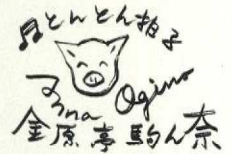 ♬とんとん拍子
Ogino
金原亭駒ん奈